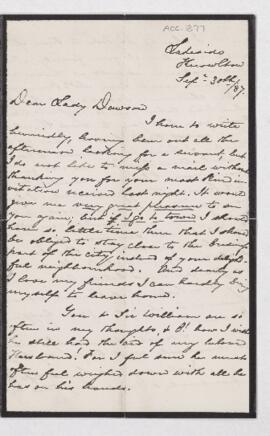 ACC. 877
Lakeside
Knowlton
Sep. 30th /87.
Dear Lady Dawson
I have to write
hurriedly, having been out all the
afternoon looking for a servant, but
I do not like to miss a mail without
thanking you for your most kind in-
vitation received last night. It would
give me very great pleasure to see
you again; but if I go to town I should
have so little time there that I should
be obliged to stay close to the
part of the city, instead of your delight-
ful neighbourhood. And dearly as
I love my friends I can hardly bring
myself to leave home.
You & Sir William are so
often in my thoughts, & O! how I wish
he still had the aid of my beloved
Husband! For I feel sure he must
often feel weighed down with all he
has on his hands.